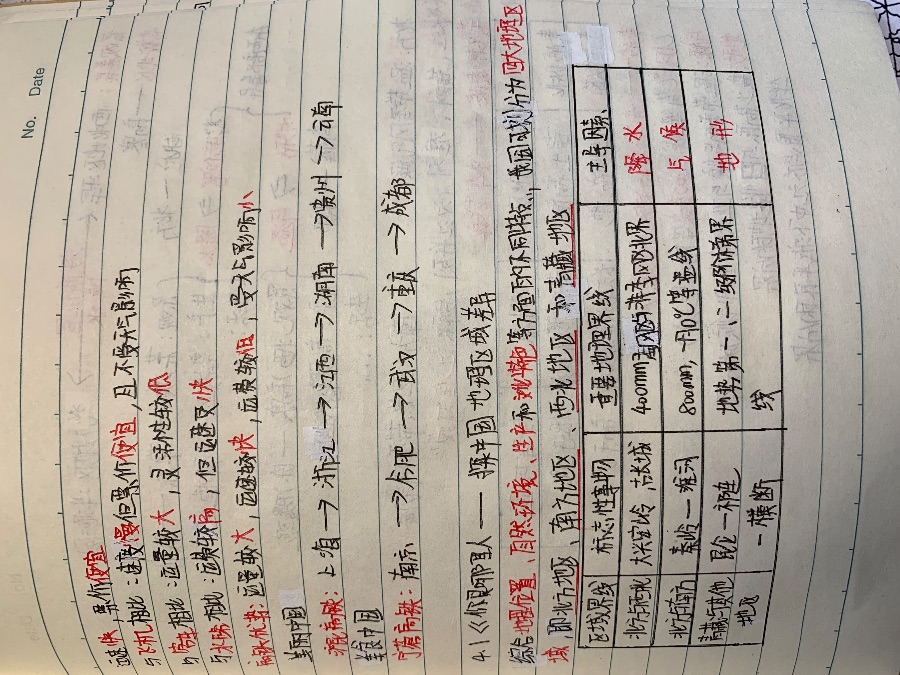 No.
Date
速快，票价便宜
与飞机相比：速度慢但票价便宜，且不受天气影响
与相比：运量较大，灵活性较低
与水路相比：运费较高，但速度快
高铁优势：运量较大，运速较快，运费较低，受天气影响小
美丽中国
沪昆高铁：上海→浙江→江西→湖南→贵州→云南
美食中国
宁蓉高铁：南京→合肥→武汉→重庆→成都
4.1《你是哪里人——探中国地理区域差异
综合地理位置、自然环境、生产和文化等方面的不同特点，我国可划分为四大地理区
域，即北方地区、南方地区、西北地区和青藏地区
区域界线 标志性事物 重要地理界线 主导因素
北方与西北 大兴安岭，古长城 400mm，季风与非季风区界 降水
北方与南方 秦岭—淮河 800mm，一月0℃等温线 气候
青藏与其他 昆仑—祁连 地势第一、二级阶梯界 地形
地区 —横断 线